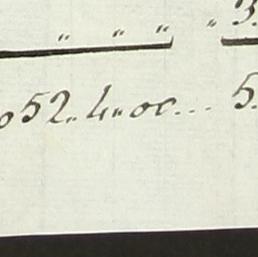 " " " " 3.
052.4.00... 5.